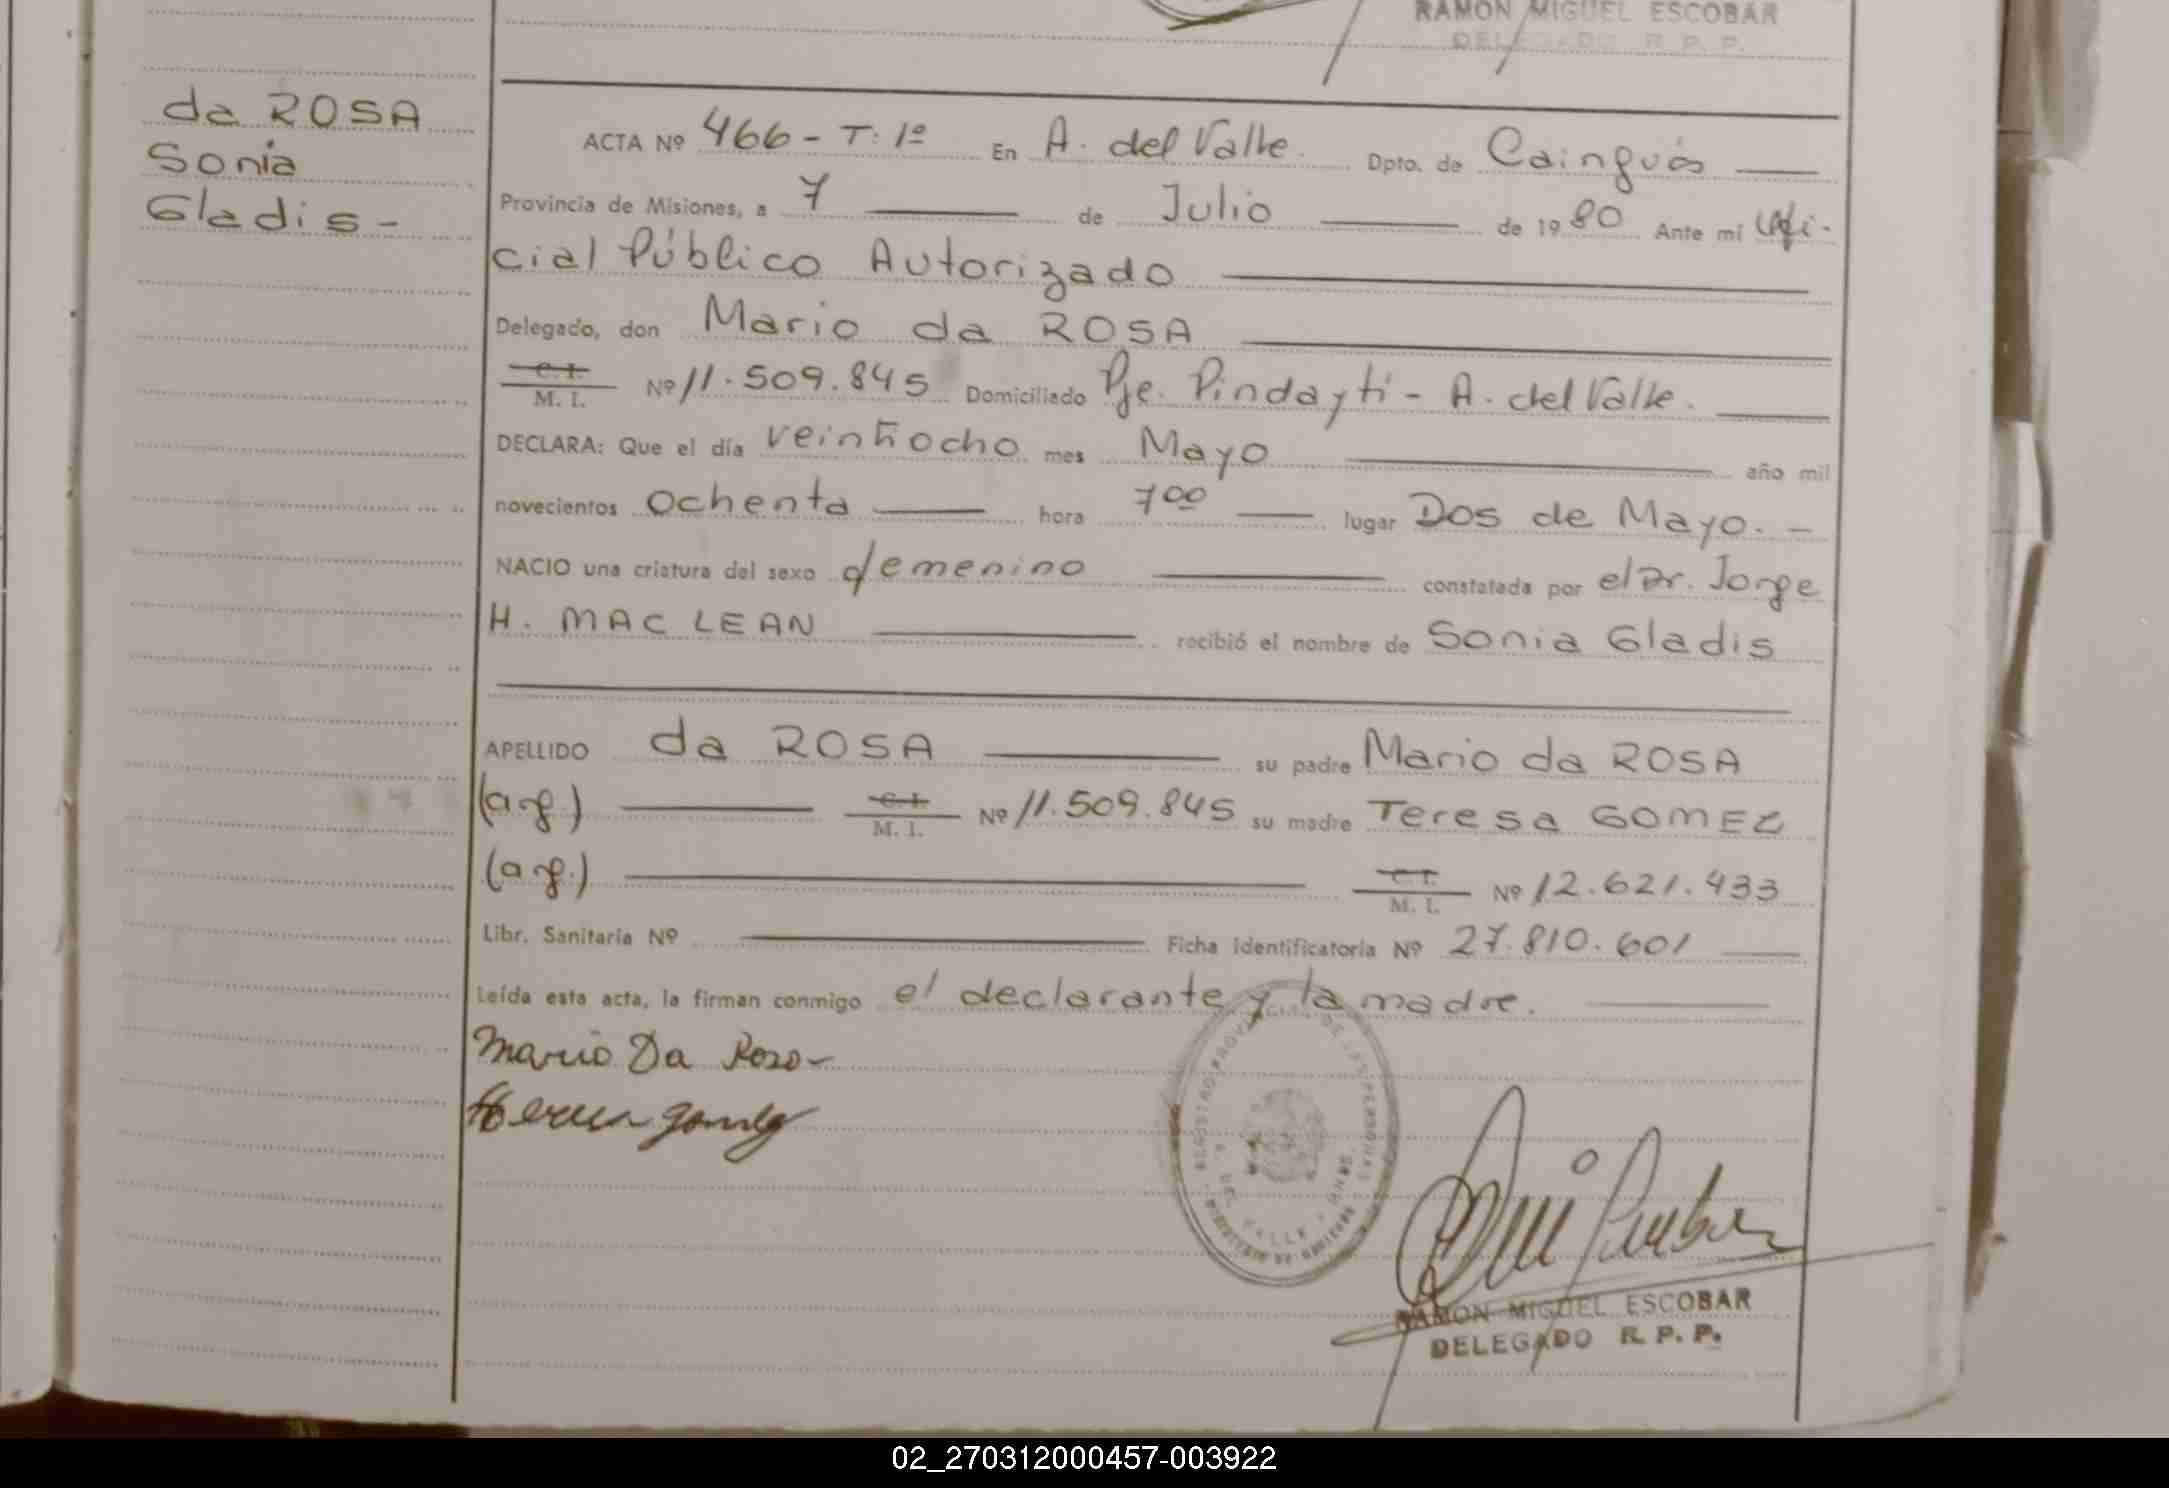 RAMON MIGUEL ESCOBAR
DELEGADO R. P. P.
da ROSA
Sonia
Gladis -
ACTA Nº 466 - T: 1º En A. del Valle. Dpto. de Cainguás
Provincia de Misiones, a 7 de Julio de 1980 Ante mí Ofi-
cial Público Autorizado
Delegado, don Mario da ROSA
C. I.
M. I. Nº 11.509.845 Domiciliado Pje. Pindaytí - A. del Valle.
DECLARA: Que el día veintiocho mes Mayo año mil
novecientos ochenta hora 7 00 lugar Dos de Mayo. -
NACIO una criatura del sexo femenino constatada por el Dr. Jorge
H. MAC LEAN recibió el nombre de Sonia Gladis
APELLIDO da ROSA su padre Mario da ROSA
(arg.) C. I.
M. I. Nº 11.509.845 su madre Teresa GOMEZ
(arg.) C. I.
M. I. Nº 12.621.433
Libr. Sanitaria Nº Ficha Identificatoria Nº 27.810.601
Leída esta acta, la firman conmigo el declarante y la madre.
Mario Da Rosa
REGISTRO PROVINCIAL DE LAS PERSONAS
A. DEL VALLE - MNES.
RAMON MIGUEL ESCOBAR
DELEGADO R. P. P.
02_270312000457-003922